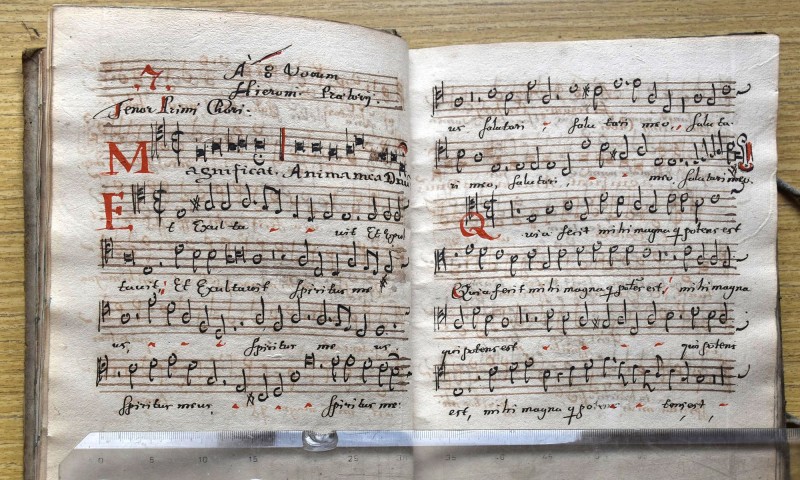 .7.
A 8 Vocum
Hieron: Prætorij.
Tenor Primi Chori.
Magnificat. Anima mea Dnũ
Et Exulta - - vit Et Exul
tavit; Et Exultavit Spiritus me
us, - - - spiritus me us
spiritus meus, - - - spiritus me:
us salutari - salu tari meo,, Saluta:
ri meo, salutari, - - - meo salutari meo.
Quia fecit mihi magna q potens est
Quia fecit mihi magna q potẽs est, mihi magna
qui potens est - - - - qui potens
est, mihi magna q potens - tens est, -
0 5 10 15 25